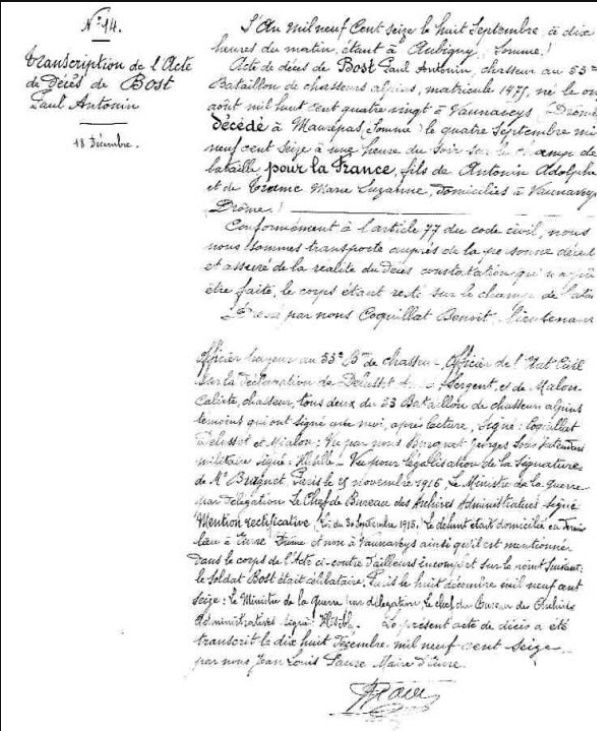 N° 14.
Transcription de l'Acte
de Décès de Bost
Paul Antonin
18 Décembre.
L'An mil neuf Cent seize le huit Septembre à dix
heures du matin, étant à Aubigny, Somme,
Acte de décès de Bost Paul Antonin, chasseur au 53e
Bataillon de chasseurs alpins, matricule 1475, né le on
août mil huit cent quatre vingt à Vaunaveys (Drôme
décédé à Maurepas (Somme) le quatre Septembre mi
neuf cent seize à une heure du soir sur le champ de
bataille, pour la France, fils de Antonin Adolphe
et de Marie Suzanne, domiciliés à Vaunavey
Drôme.)
Conformément à l'article 77 du code civil, nous
nous sommes transporté auprès de la personne décéd
et assuré de la réalité du Décès constatation qui n'a pu
être faite, le corps étant resté sur le champ de
Dressé par nous Coquillat Benoit, lieutenan
Officier payeur au 53e Bon de chasseurs, Officier de l'Etat Civil
sur la Déclaration de Sergent, et de
chasseur, tous deux du 53 Bataillon de chasseurs alpins
témoins qui ont signé avec moi, après lecture, Signé: Coquillat
et Vu par nous Georges Sous intendant
militaire signé: Vu pour légalisation de la Signature
de Mr Paris le novembre 1916, Le Ministre de la guerre
par délégation Le Chef de Bureau des Archives Administratives signé
Mention rectificative le défunt était domicilié en dernier
lieu à Eurre Drôme et non à Vaunaveys ainsi qu'il est mentionné
dans le corps de l'Acte ci-contre
le soldat Bost était célibataire, Paris le huit décembre mil neuf cent
seize: le Ministre de la guerre par délégation le chef du Bureau des Archives
Administratives signé: Le présent acte de décès a été
transcrit le dix huit Décembre mil neuf cent seize
par nous Jean Louis Maire d'Eurre.